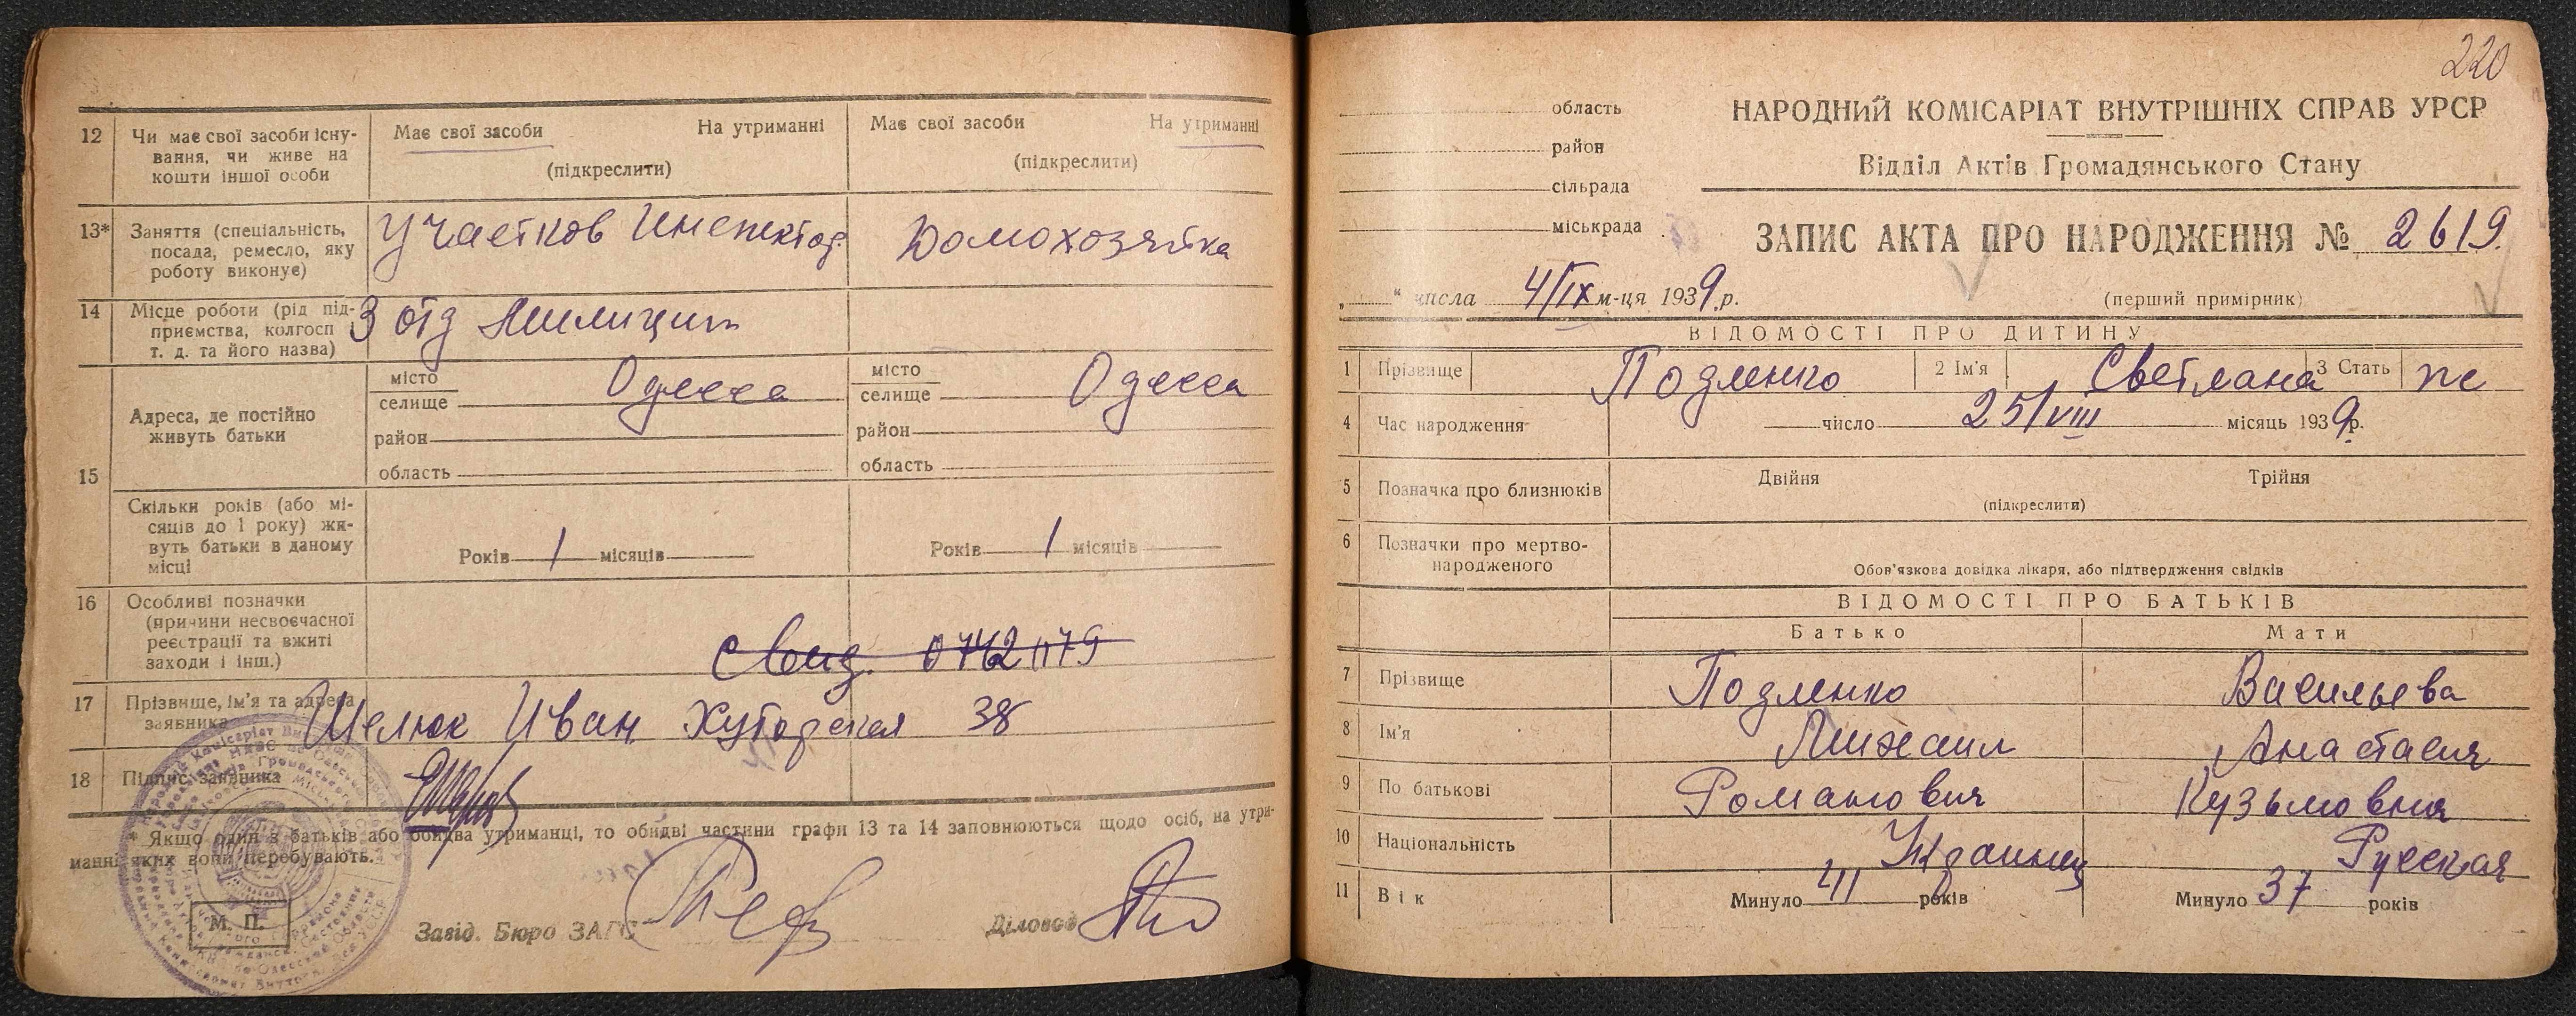 12 Чи має свої засоби існу-
вання, чи живе на
кошти іншої особи
Має свої засоби На утриманні
(підкреслити)
Має свої засоби На утриманні
(підкреслити)
13* Заняття (спеціальність,
посада, ремесло, яку
роботу виконує)
Участков Инспектор
Домохозяйка
14 Місце роботи (рід під-
приємства, колгосп
т. д. та його назва)
3 отд Милиции
15 Адреса, де постійно
живуть батьки
місто
селище Одесса
район
область
місто
селище Одесса
район
область
Скільки років (або мі-
сяців до 1 року) жи-
вуть батьки в даному
місці
Років 1 місяців
Років 1 місяців
16 Особливі позначки
(причини несвоєчасної
реєстрації та вжиті
заходи і інш.)
Свид. 0742179
17 Прізвище, ім'я та адреса
заявника
Шелюк Иван Хуторская 38
18 Підпис заявника
* Якщо один з батьків або обидва утриманці, то обидві частини графи 13 та 14 заповнюються щодо осіб, на утри-
манні яких вони перебувають.
М. П.
Завід. Бюро ЗАГС
Діловод
220
область
район
сільрада
міськрада
НАРОДНИЙ КОМІСАРІАТ ВНУТРІШНІХ СПРАВ УРСР
Відділ Актів Громадянського Стану
ЗАПИС АКТА ПРО НАРОДЖЕННЯ № 2619.
„ “ числа 4/IX м-ця 1939 р.
(перший примірник)
ВІДОМОСТІ ПРО ДИТИНУ
1 Прізвище Подленко 2 Ім'я Светлана 3 Стать ж
4 Час народження число 25/VIII місяць 1939 р.
5 Позначка про близнюків Двійня Трійня
(підкреслити)
6 Позначки про мертво-
народженого
Обов'язкова довідка лікаря, або підтвердження свідків
ВІДОМОСТІ ПРО БАТЬКІВ
Батько Мати
7 Прізвище Подленко Васильева
8 Ім'я Михаил Анастасия
9 По батькові Романович Кузьмовня
10 Національність Украинец Русская
11 Вік Минуло 41 років Минуло 37 років